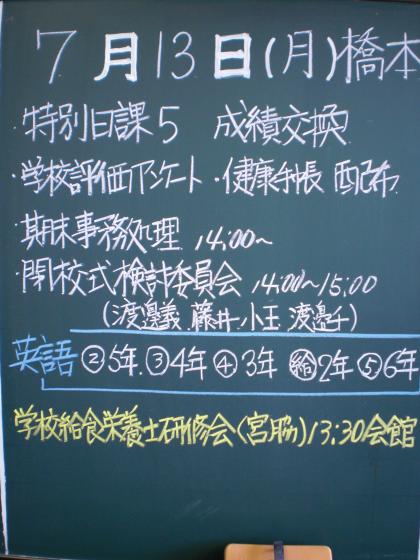 7月13日(月)橋本
・特別日課5 成績交換
・学校評価アンケート・健康手帳 配布
・期末事務処理 14:00~
・閉校式検討委員会 14:00~15:00
(渡邉義、藤井、小玉、渡邉千)
英語 ②5年 ③4年 ④3年 ㊉2年 ⑤6年
学校給食栄養士研修会(宮脇)13:30会館